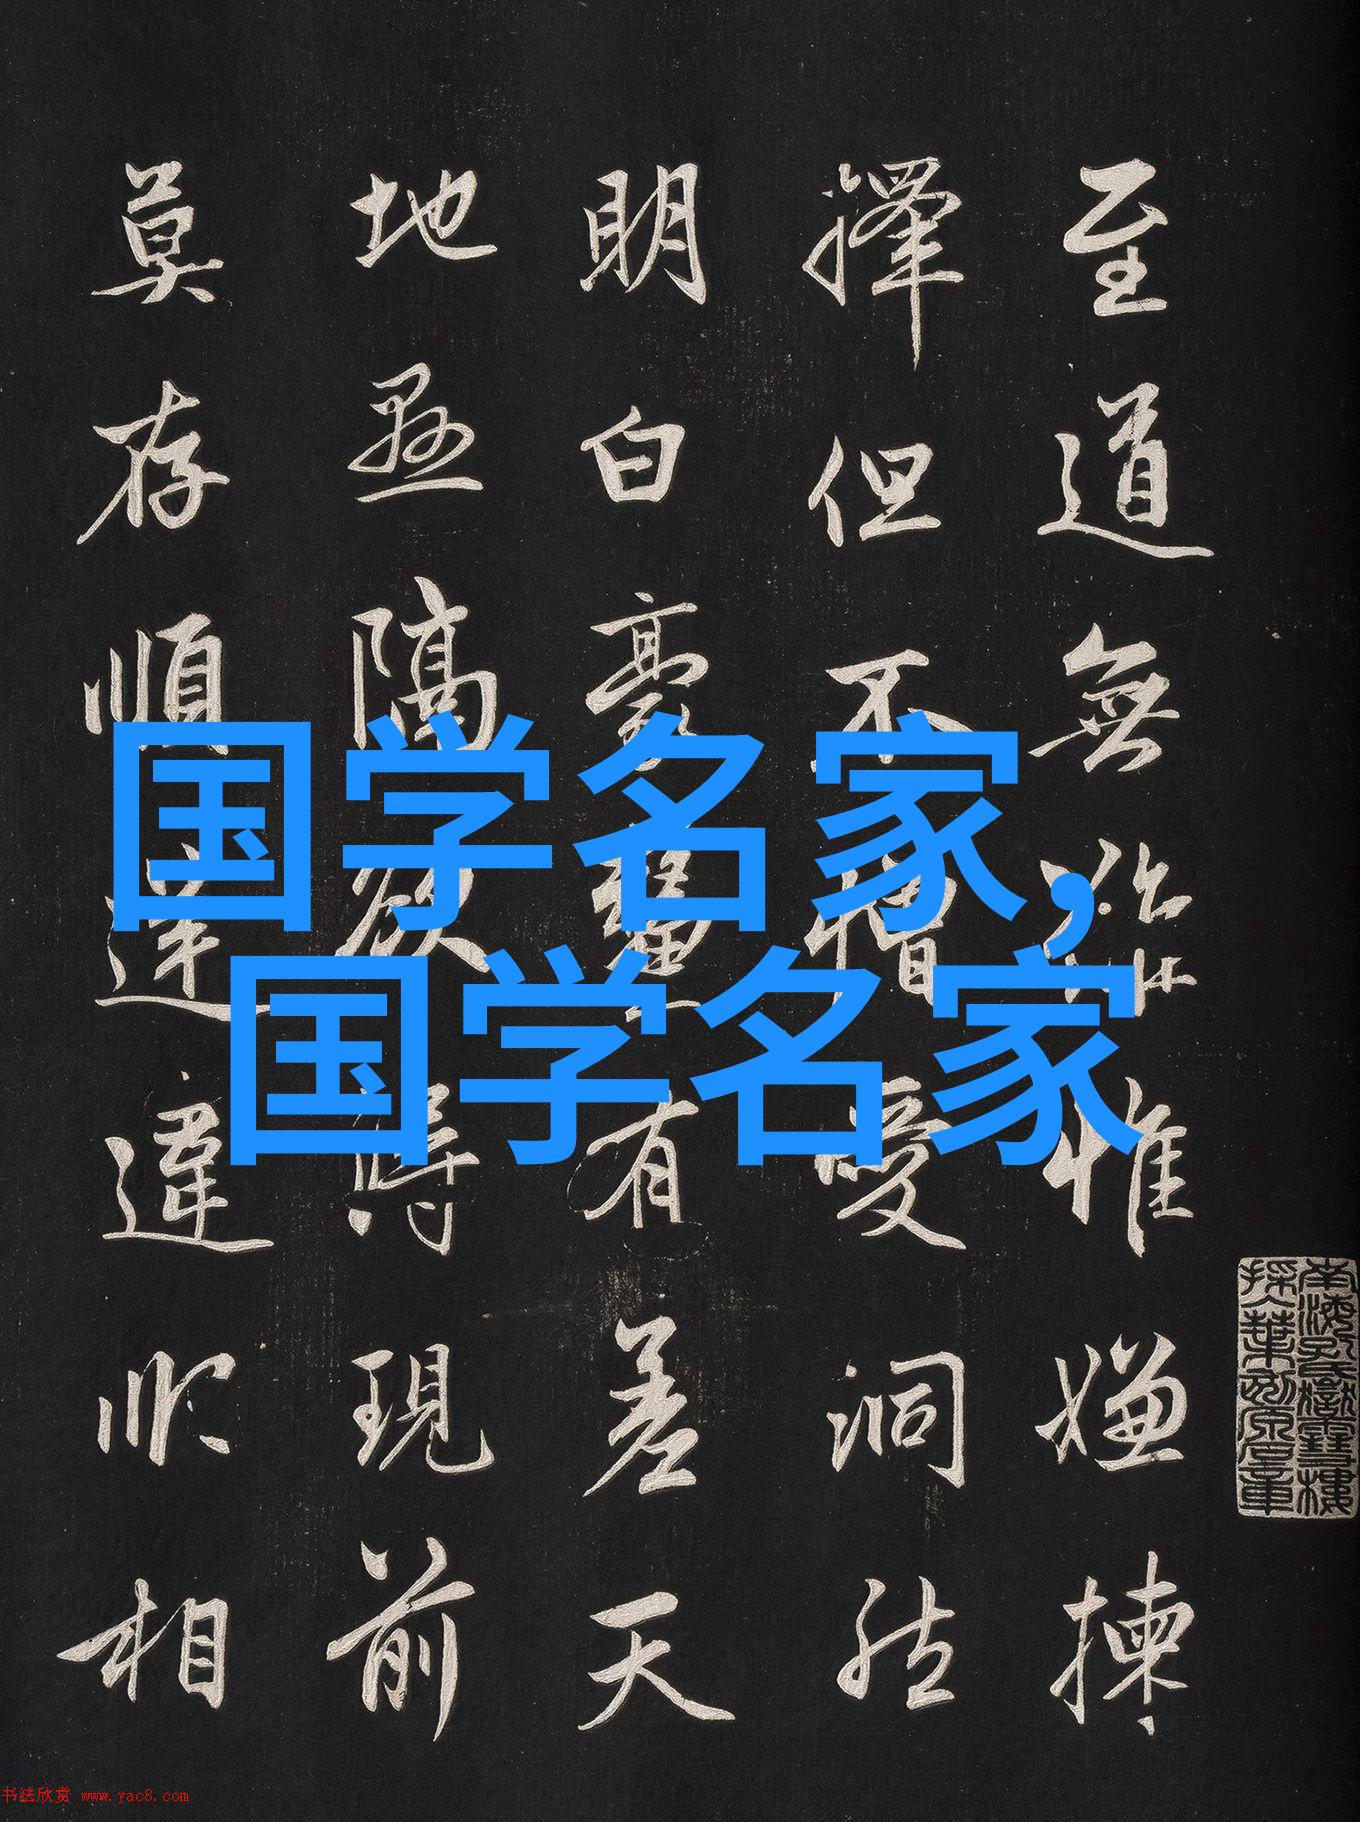 至道無難惟嫌揀
擇但不憎愛洞然
明白毫釐有差天
地懸隔欲得現前
莫存順逆違順相
国学名家,
国学名家
南海孔氏嶽雪樓
书法欣赏 www.yac8.com